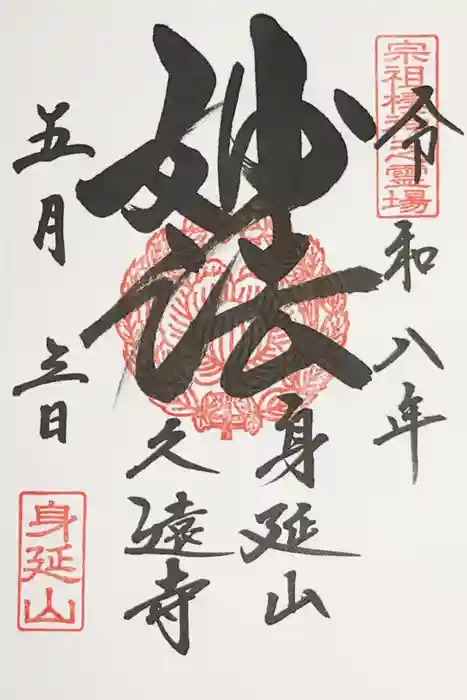 宗祖棲神之霊場
令和八年
妙法
身延山
久遠寺
五月 日
身延山